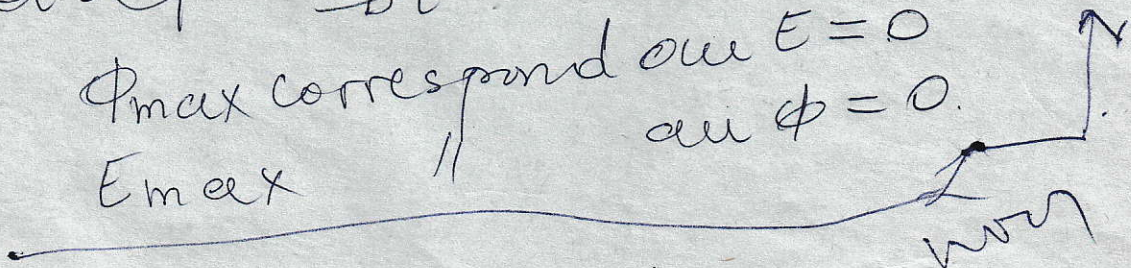 Φmax correspond au E = 0
Emax " au ϕ = 0.